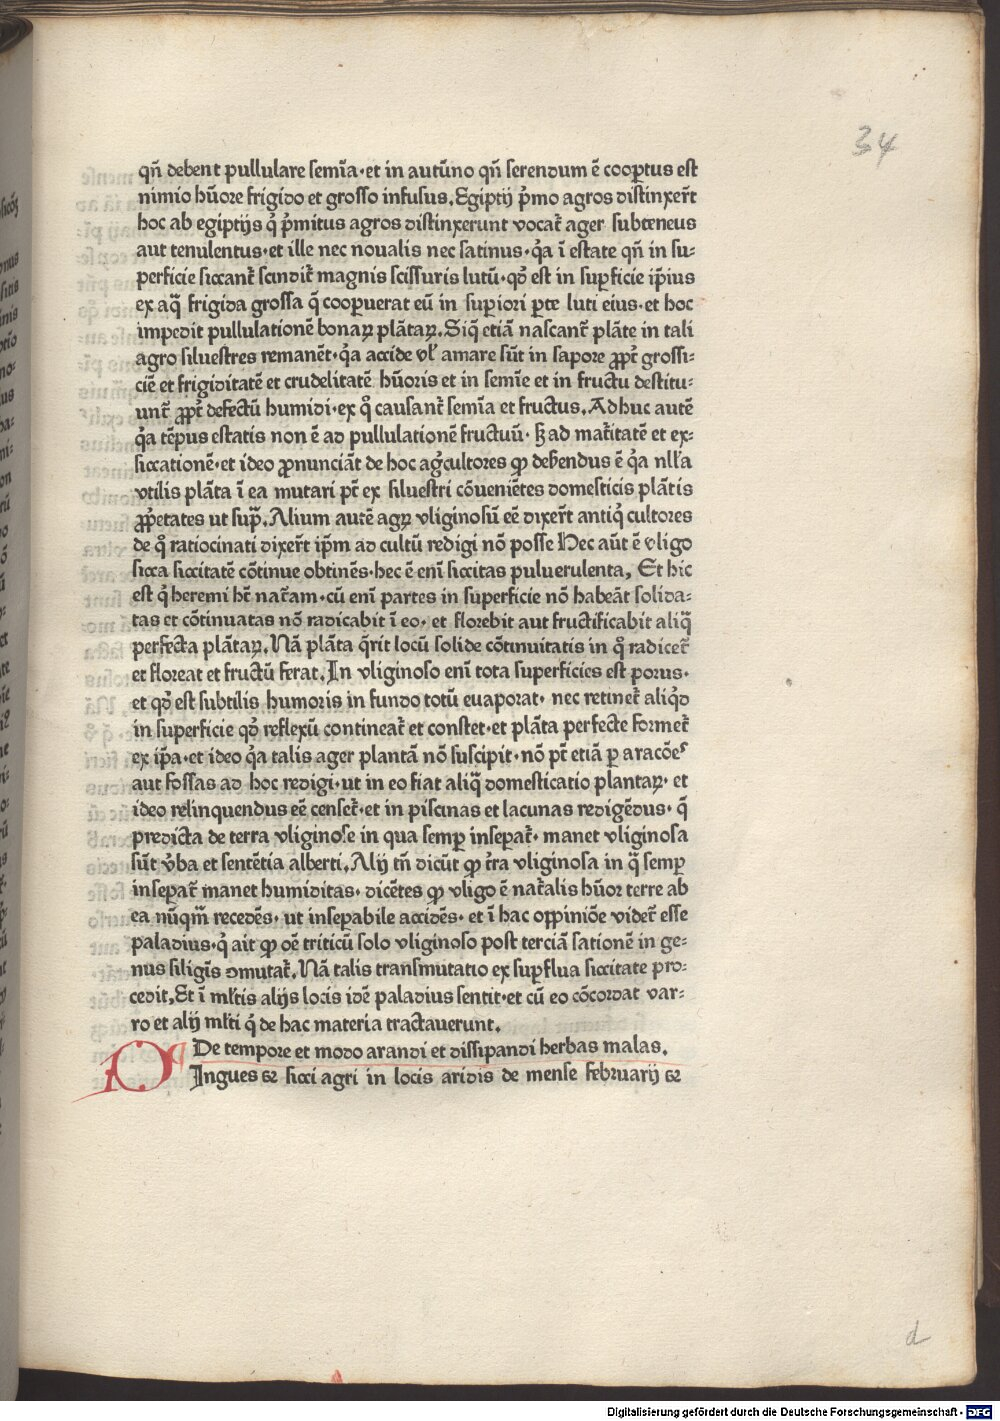 34
qn̄ debent pullulare semīa·et in autūno qn̄ serendum ē cooꝑtus est
nimio hūore frigido et grosso infusus. Egiptij p̄mo agros distinxer̄t
hoc ab egiptijs q̇ p̄mitus agros distinxerunt vocat̄ ager subteneus
aut tenulentus·et ille nec noualis nec satinus·q̇a ī estate qn̄ in su-
perficie siccant̄ scindit̄ magnis scissuris lutū·qd̄ est in suꝑficie ip̄ius
ex aq̄ frigida grossa q̄ cooꝑuerat eū in suꝑiori ꝑte luti eius·et hoc
impedit pullulationē bonaꝝ plātaꝝ. Siq̄ etiā nascant̄ plāte in tali
agro siluestres remanēt·q̇a accide vl̄ amare sūt in sapore ꝓpt̄ grossi-
ciē et frigiditatē et crudelitatē hūoris et in semīe et in fructu destitu-
unt̄ ꝓpt̄ defectū humidi·ex q̊ causant̄ semīa et fructus. Adhuc autē
q̇a tēpus estatis non ē ad pullulationē fructuū· ꜩ ad mat̄itatē et ex-
siccationē·et ideo ꝓnunciāt de hoc ag̊cultores ꝙ debendus ē q̇a nll̄a
vtilis plāta ī ea mutari pt̄ ex siluestri cōueniētes domesticis plātis
ꝓp̄etates ut sup̄. Alium autē agꝝ vliginosū eē dixer̄t antiq̇ cultores
de q̊ ratiocinati dixer̄t ip̄m ad cultū redigi nō posse Hec aūt ē vligo
sicca siccitatē cōtinue obtinēs·hec ē enī siccitas puluerulenta. Et hic
est q̇ heremi hn̄t nat̄am·cū enī partes in superficie nō habeāt solida-
tas et cōtinuatas nō radicabit ī eo· et florebit aut fructificabit aliq̄
perfecta plātaꝝ. Nā plāta q̄rit locū solide cōtinuitatis in q̊ radicet̄
et floreat et fructū ferat. In vliginoso enī tota superficies est porus·
et qd̄ est subtilis humoris in fundo totū euaporat· nec retinet̄ aliq̇d
in superficie qd̄ reflexū contineat̄ et constet·et plāta perfecte formet̄
ex ip̄a·et ideo q̇a talis ager plantā nō suscipit·nō pt̄ etiā ꝑ aracōes
aut fossas ad hoc redigi·ut in eo fiat aliq̄ domesticatio plantaꝝ· et
ideo relinquendus eē censet̄·et in piscinas et lacunas redigēdus· q̄
predicta de terra vliginose in qua semꝑ insepat̄· manet vliginosa
sūt v̄ba et sentētia alberti. Alij tn̄ dicūt ꝙ t̄ra vliginosa in q̄ semꝑ
insepat̄ manet humiditas· dicētes ꝙ vligo ē nat̄alis hūor terre ab
ea nūqm̄ recedēs· ut insepabile accidēs· et ī hac oppiniōe videt̄ esse
paladius·q̇ ait ꝙ oē triticū solo vliginoso post terciā sationē in ge-
nus siligīs ↄmutat̄. Nā talis transmutatio ex suꝑflua siccitate pro-
cedit. Et ī ml̄tis alijs locis idē paladius sentit·et cū eo cōcordat var-
ro et alij ml̄ti q̇ de hac materia tractauerunt.
De tempore et modo arandi et dissipandi herbas malas.
PIngues et sicci agri in locis aridis de mense februarij et
d
Digitalisierung gefördert durch die Deutsche Forschungsgemeinschaft - DFG